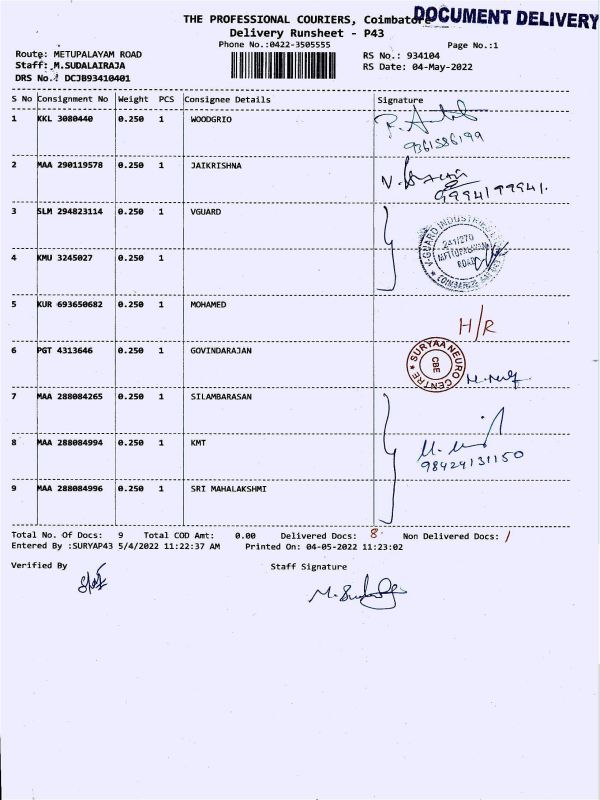 THE PROFESSIONAL COURIERS, Coimbatore
DOCUMENT DELIVERY
Delivery Runsheet - P43
Phone No.:0422-3505555
Page No.:1
Route: METUPALAYAM ROAD
RS No.: 934104
Staff: M.SUDALAIRAJA
RS Date: 04-May-2022
DRS No.: DCJB93410401
S No Consignment No Weight PCS Consignee Details Signature
1 KKL 3080440 0.250 1 WOODGRIO
9361586199
2 MAA 290119578 0.250 1 JAIKRISHNA
9994199941.
3 SLM 294823114 0.250 1 VGUARD
V-GUARD INDUSTRIES
ROAD
4 KMU 3245027 0.250 1
5 KUR 693650682 0.250 1 MOHAMED
H/R
6 PGT 4313646 0.250 1 GOVINDARAJAN
SURYAA NEURO CENTRE
CBE
7 MAA 288084265 0.250 1 SILAMBARASAN
8 MAA 288084994 0.250 1 KMT
98424131150
9 MAA 288084996 0.250 1 SRI MAHALAKSHMI
Total No. Of Docs: 9 Total COD Amt: 0.00 Delivered Docs: 8 Non Delivered Docs: 1
Entered By :SURYAP43 5/4/2022 11:22:37 AM Printed On: 04-05-2022 11:23:02
Verified By Staff Signature